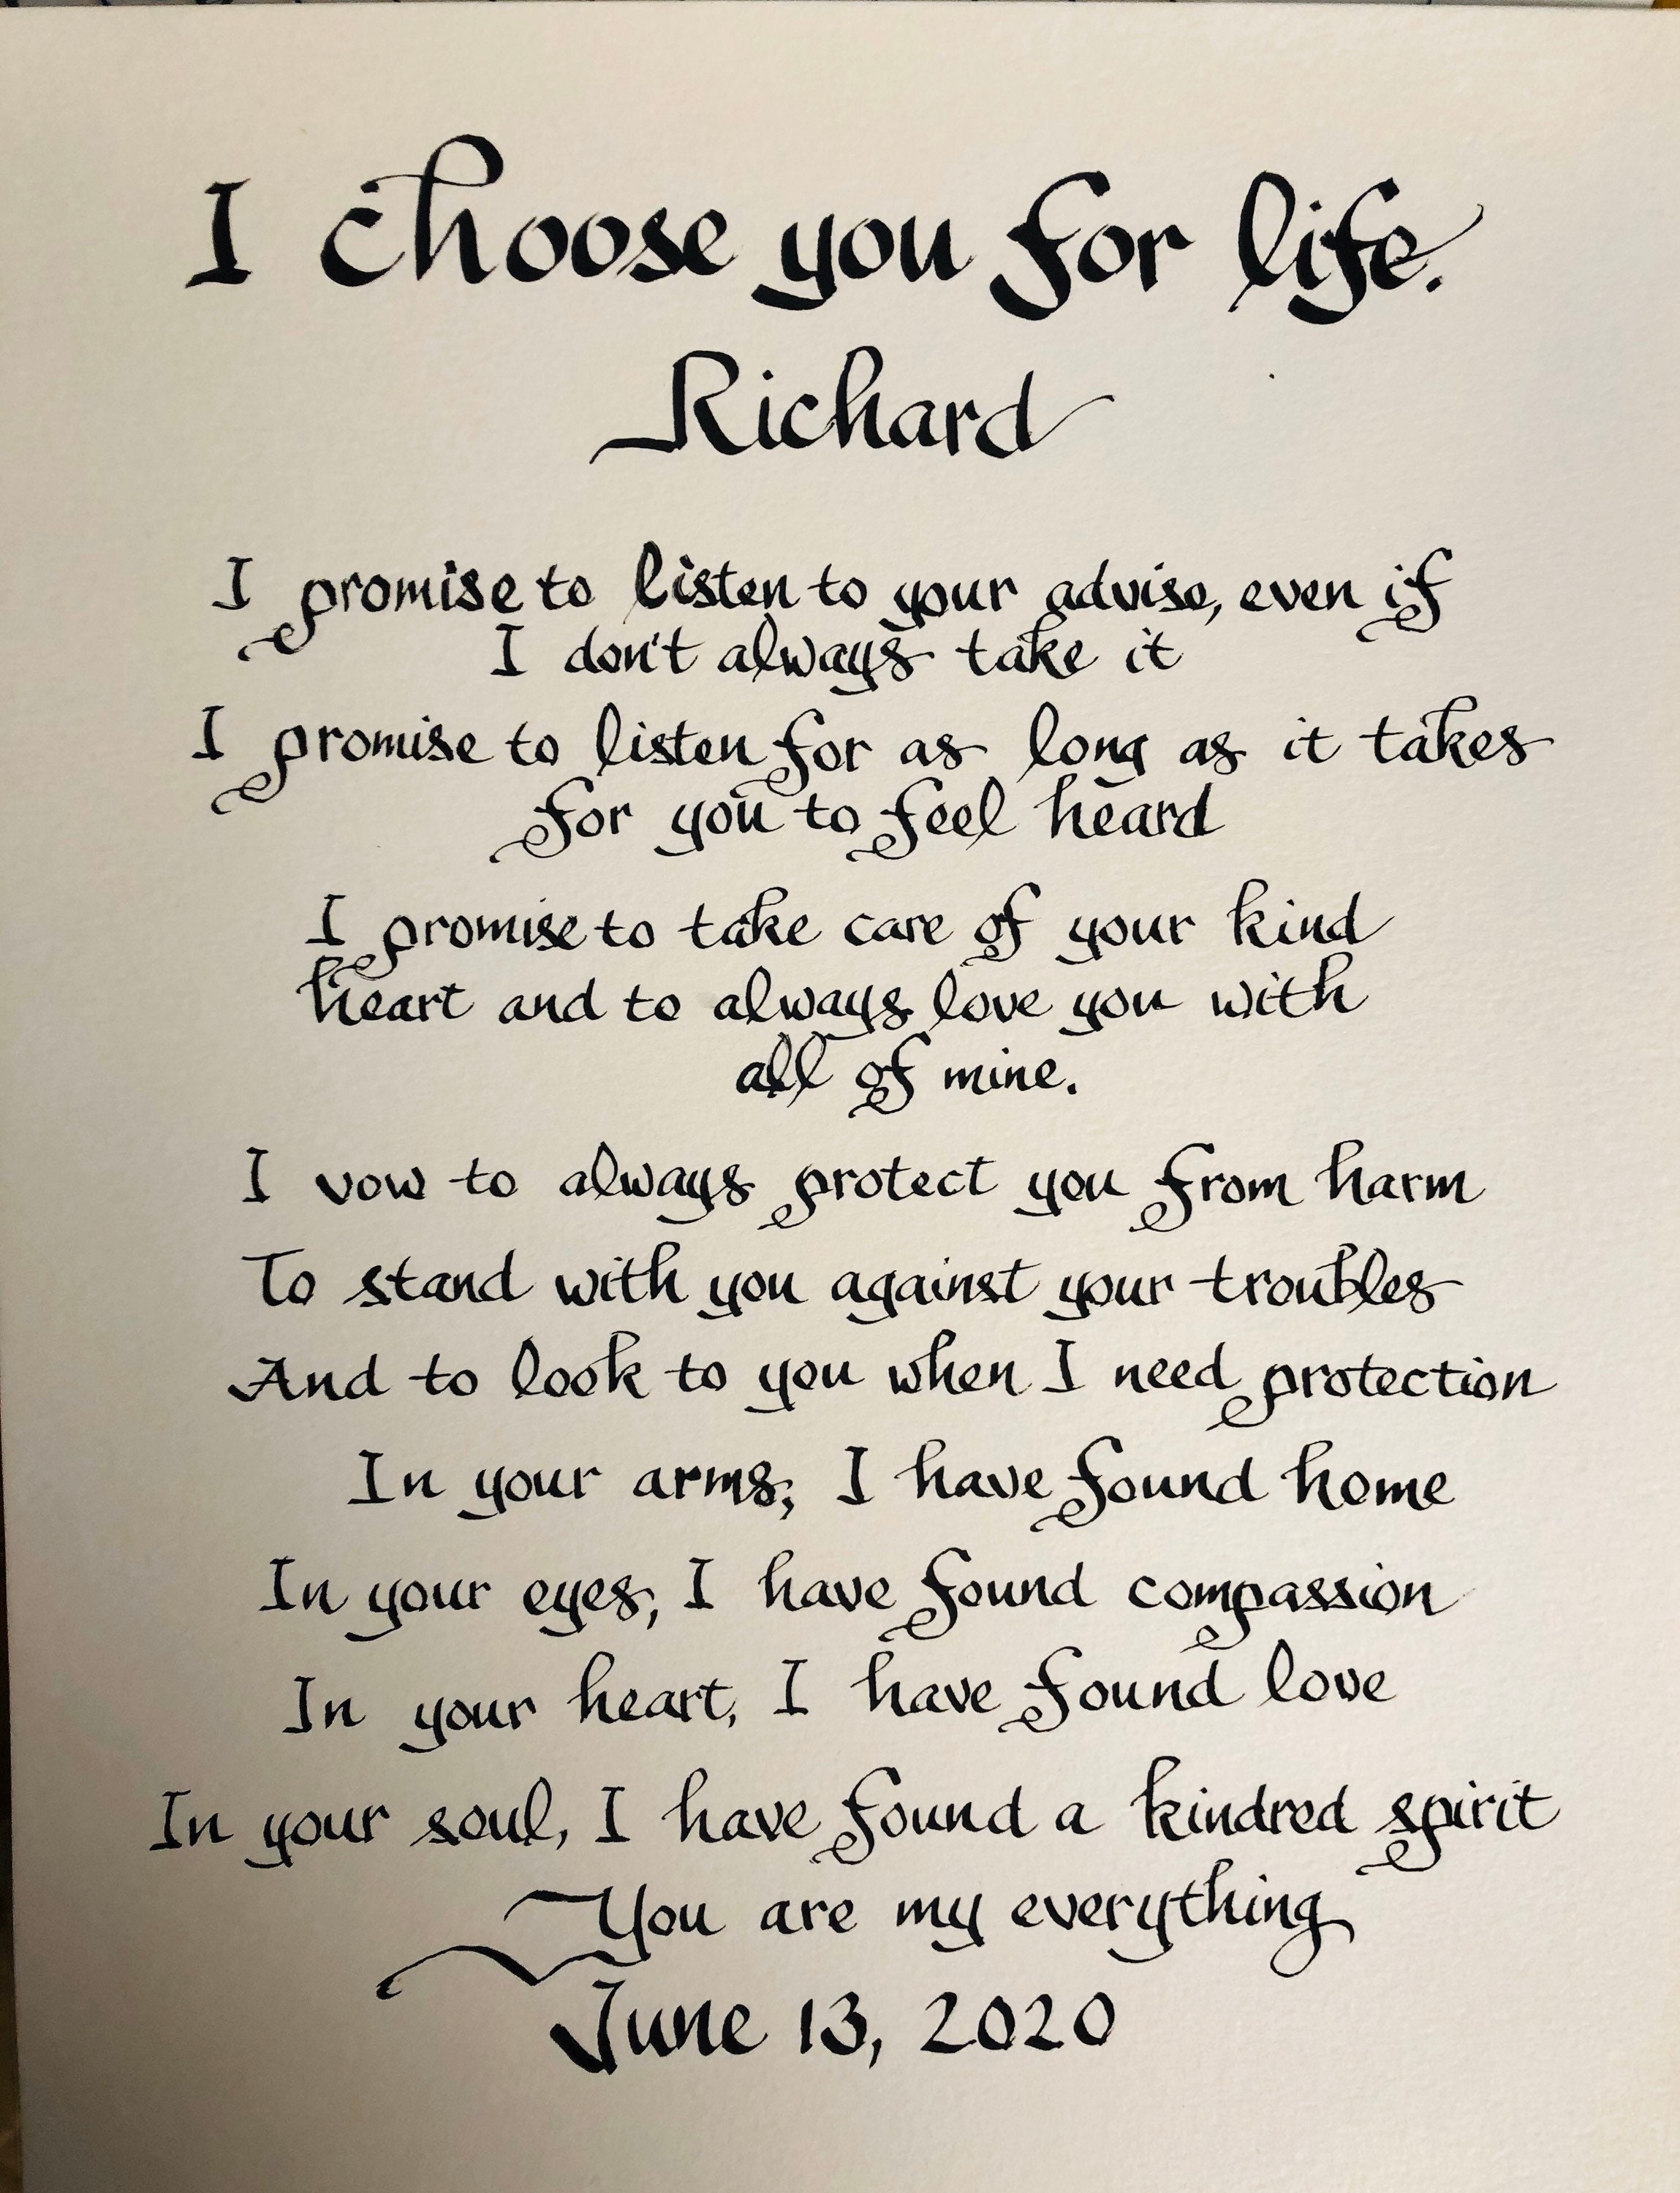 I choose you for life.
Richard
I promise to listen to your advise, even if
I don't always take it
I promise to listen for as long as it takes
for you to feel heard
I promise to take care of your kind
heart and to always love you with
all of mine.
I vow to always protect you from harm
To stand with you against your troubles
And to look to you when I need protection
In your arms, I have found home
In your eyes, I have found compassion
In your heart, I have found love
In your soul, I have found a kindred spirit
You are my everything
June 13, 2020